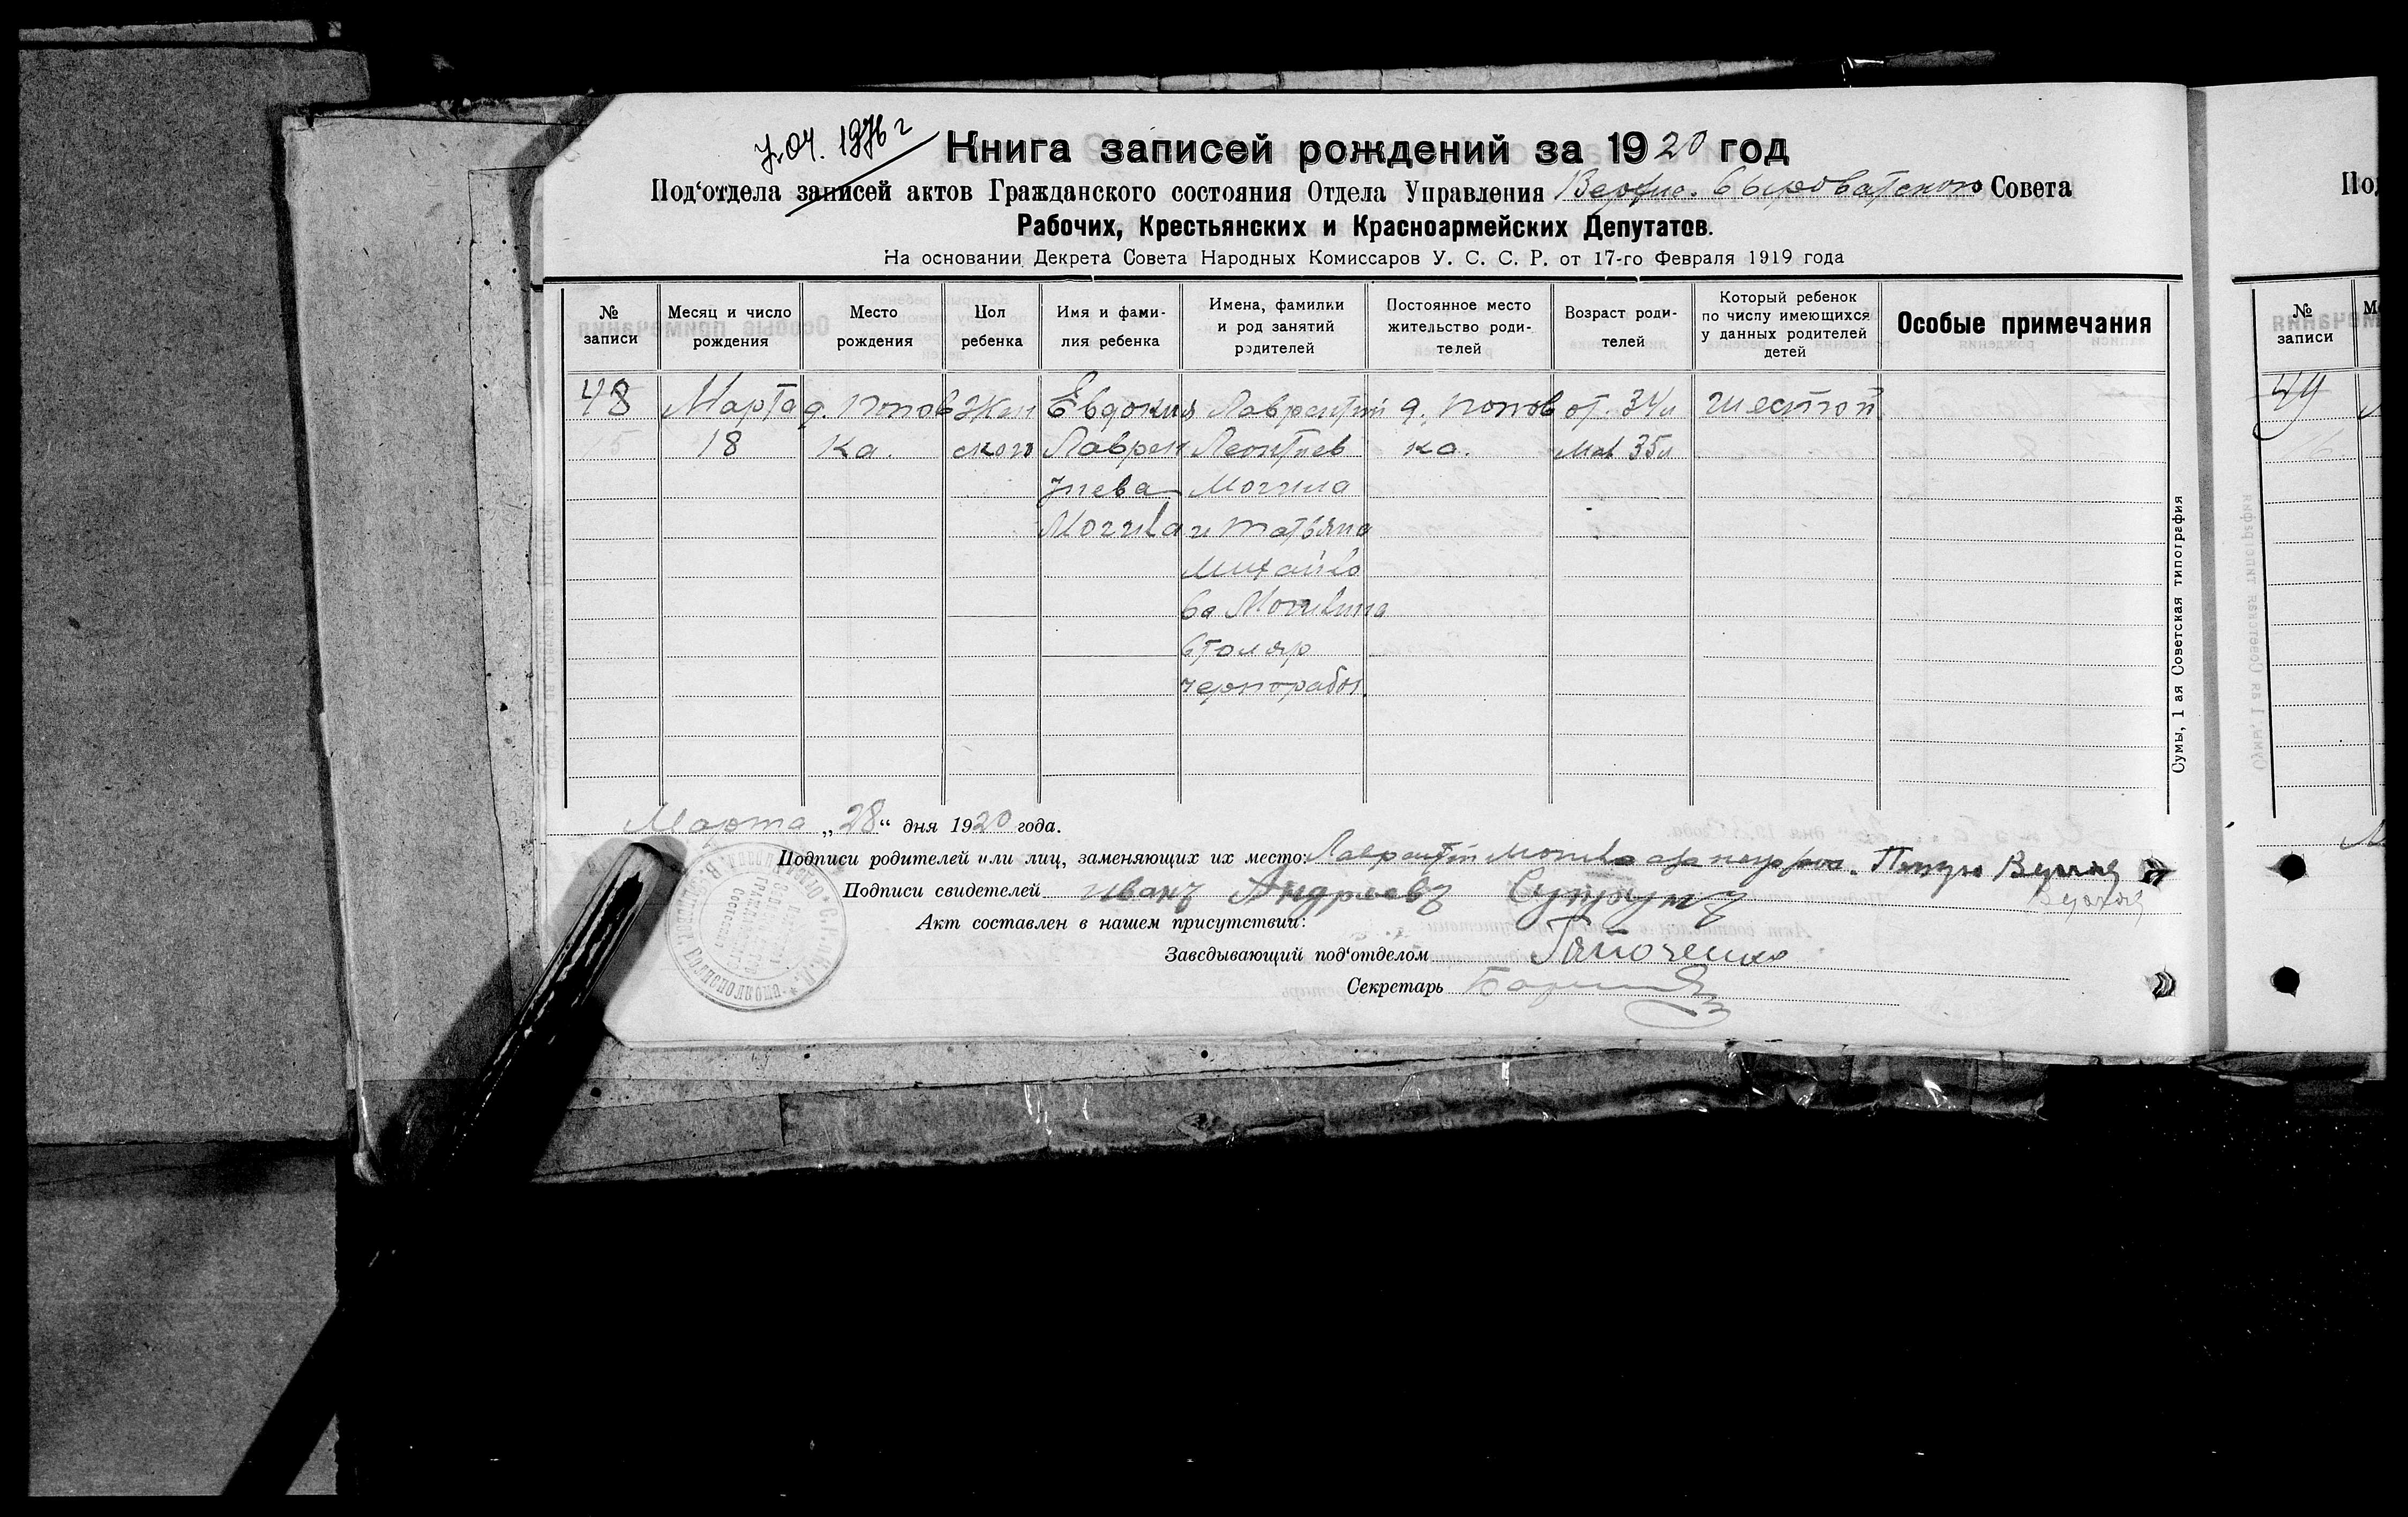 у. 04. 1976 г
Книга записей рождений за 1920 год
Под'отдела записей актов Гражданского состояния Отдела Управления Верхне. Сыроватского Совета
Рабочих, Крестьянских и Красноармейских Депутатов.
На основании Декрета Совета Народных Комиссаров У. С. С. Р. от 17-го Февраля 1919 года
№ записи
Месяц и число рождения
Место рождения
Пол ребенка
Имя и фамилия ребенка
Имена, фамилии и род занятий родителей
Постоянное место жительство родителей
Возраст родителей
Который ребенок по числу имеющихся у данных родителей детей
Особые примечания
48 Марта д. Попов Жен Евдокия Лаврентий д. Попов от. 34л шестой
15 18 ка. ского Лаврен Леонтиев ка. Мат 35л
тиева Могила
Могила и Татьяна
Михайло
ва Могилина
Столяр
чернорабоч.
Марта „28“ дня 1920 года.
Подписи родителей или лиц, заменяющих их место: Лаврентий Могила
Подписи свидетелей Иванъ Андреевъ Супрунъ
Акт составлен в нашем присутствии:
Заведывающий под'отделом
Секретарь
Сумы, 1 ая Советская типография
Под
№ записи
49
16